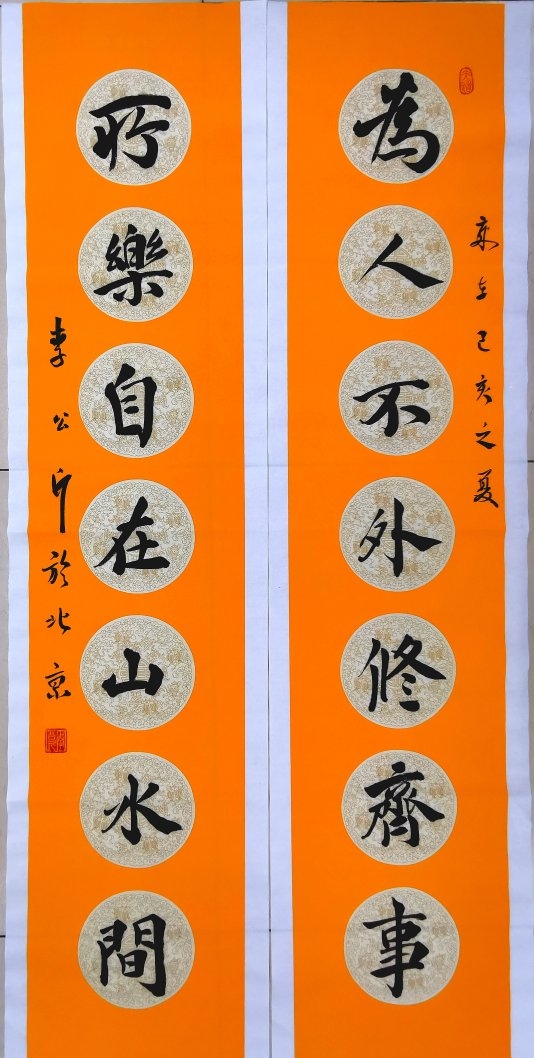 為人不外修齊事
歲在己亥之夏
所樂自在山水間
李公
於北京